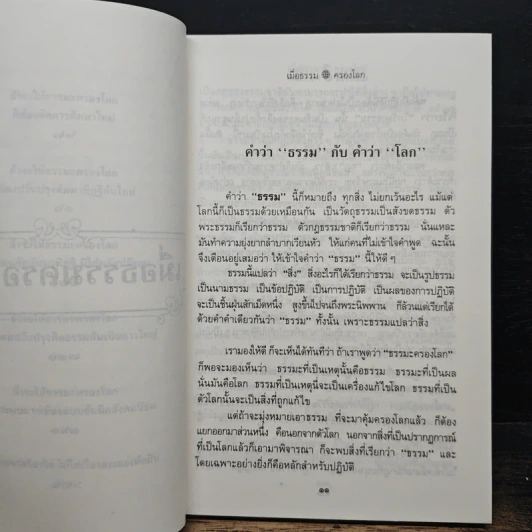 เมื่อธรรม ครองโลก
คำว่า “ธรรม” กับ คำว่า “โลก”
คำว่า “ธรรม” นี้ก็หมายถึง ทุกสิ่ง ไม่ยกเว้นอะไร แม้แต่
โลกนี้ก็เป็นธรรมด้วยเหมือนกัน เป็นวัตถุธรรมเป็นสังขตธรรม ตัว
พระธรรมก็เรียกว่าธรรม ตัวกฎธรรมชาติก็เรียกว่าธรรม นั่นแหละ
มันทำความยุ่งยากลำบากเวียนหัว ให้แก่คนที่ไม่เข้าใจคำพูด ฉะนั้น
จึงเตือนอยู่เสมอว่า ให้เข้าใจคำว่า “ธรรม” นี้ให้ดี ๆ
ธรรมนี้แปลว่า “สิ่ง” สิ่งอะไรก็ได้เรียกว่าธรรม จะเป็นรูปธรรม
เป็นนามธรรม เป็นข้อปฏิบัติ เป็นการปฏิบัติ เป็นผลของการปฏิบัติ
จะเป็นขี้ฝุ่นสักเม็ดหนึ่ง สูงขึ้นไปจนถึงพระนิพพาน ก็ล้วนแต่เรียกได้
ด้วยคำคำเดียวกันว่า “ธรรม” ทั้งนั้น เพราะธรรมแปลว่าสิ่ง
เรามองให้ดี ก็จะเห็นได้ทันทีว่า ถ้าเราพูดว่า “ธรรมะครองโลก”
ก็พอจะมองเห็นว่า ธรรมะที่เป็นเหตุนั้นคือธรรม ธรรมะที่เป็นผล
นั่นมันคือโลก ธรรมที่เป็นเหตุนี่จะเป็นเครื่องแก้ไขโลก ธรรมที่เป็น
ตัวโลกนั้นจะเป็นสิ่งที่ถูกแก้ไข
แต่ถ้าจะมุ่งหมายเอาธรรม ที่จะมาคุ้มครองโลกแล้ว ก็ต้อง
แยกออกมาส่วนหนึ่ง คือนอกจากตัวโลก นอกจากสิ่งที่เป็นปรากฏการณ์
ที่เป็นโลกแล้วก็เอามาพิจารณา ก็จะพบสิ่งที่เรียกว่า “ธรรม” และ
โดยเฉพาะอย่างยิ่งก็คือหลักสำหรับปฏิบัติ
๑๑